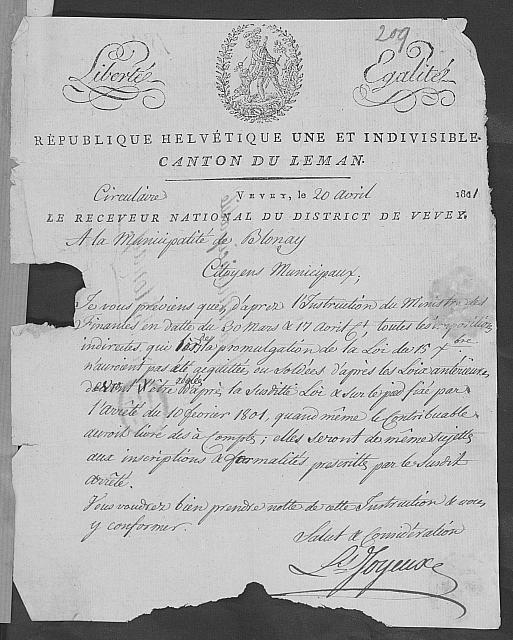 209
Liberté Egalité
RÉPUBLIQUE HELVÉTIQUE UNE ET INDIVISIBLE.
CANTON DU LEMAN.
Circulaire VEVEY, le 20 avril 1801
LE RECEVEUR NATIONAL DU DISTRICT DE VEVEY.
A la Municipalité de Blonay
Citoyens Municipaux;
Je vous préviens que d'aprez l'Instruction du Ministre des
Finances en datte du 30 Mars & 17 Avril toutes les
indirectes, qui la promulgation de la Loi de 15 Xbre
n'auroient pas été ou soldées d'après les Loix antérieures
devront l'être d'après la susdite Loi & sur le pied fixé par
l'Arrêté du 10 février 1801, quand même le Contribuable
auroit livré des à Comptes; elles seront de même sujettes
aux inscriptions & formalités prescrittes par le susdit
arrêté.
Vous voudrez bien prendre notte de cette Instruction & vous
y conformer.
Salut & Considération
Ls Joyeux